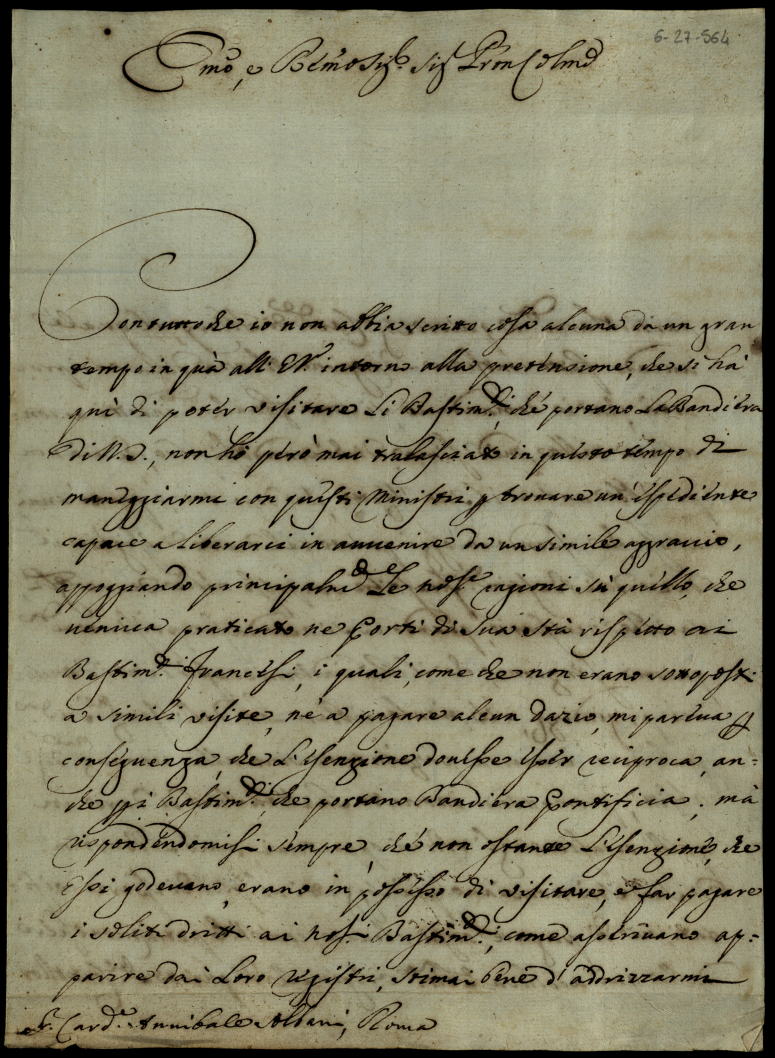 6-27-564
Emo, e Rēmo Sig.r Sig. Pron Colmo
Contuttoche io non abbia scritto cosa alcuna da un gran
tempo in quà all' EV. intorno alla pretensione, che si hà
quì di poter visitare Li Bastim.ti, che portano La Bandiera
di N.S., non hò però mai tralasciato in questo tempo di
maneggiarmi con questi Ministri p trovare un' espediente
capace a liberarci in avvenire da un simile aggravio,
appoggiando principalm.te Le nos.e ragioni sù quello, che
veniva praticato ne Porti di Sua Stà rispetto ai
Bastim.ti Francesi, i quali, come che non erano sottoposti
a simili visite, nè a pagare alcun dazio, mi pareva p
conseguenza, che L'esenzione dovesse esser reciproca, an=
che p i Bastim.ti, che portano Bandiera Pontificia; mà
rispondendomisi sempre, che non ostante L'esenzione, che
Essi godevano, erano in possesso di visitare, e far pagare
i soliti dritti ai nos.i Bastim.ti, come asserivano ap=
parire dai Loro registri, stimai bene d'addrizzarmi
S.r Card.e Annibale Albani, Roma